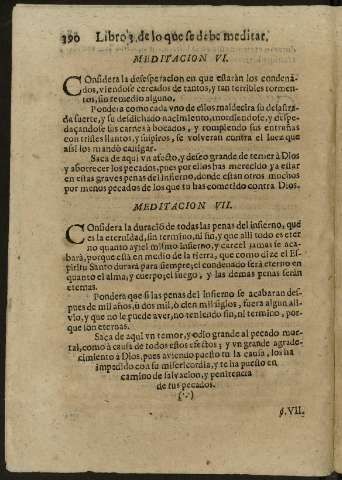 390 Libro 3. de lo que se debe meditar.
MEDITACION VI.
COnsidera la desesperacion en que estaràn los condenà-
dos, viendose cercados de tantos, y tan terribles tormen-
tos, sin remedio alguno.
Pondera como cada vno de ellos maldecira su desastra-
da suerte, y su desdichado nacimiento, mordiendose, y despe-
daçandose sus carnes à bocados, y rompiendo sus entrañas
con tristes llantos, y suspiros, se volveran contra el Iuez que
assi los mandò castigar.
Saca de aqui vn afecto, y deseo grande de temer à Dios
y aborrecer los pecados, pues por ellos has merecido ya estar
en estas graves penas del infierno, donde estàn otros muchos
por menos pecados de los que tu has cometido contra Dios.
MEDITACION VII.
COnsidera la duraciõ de todas las penas del infierno, que
es la eternidad, sin termino, ni fin, y que alli todo es eter
no quanto ay; el mismo infierno, y carcel jamas se aca-
barà, porque està en medio de la tierra, que como dize el Es-
piritu Santo durarà para siempre; el condenado serà eterno en
quanto el alma, y cuerpo; el fuego, y las demas penas seràn
eternas.
Pondera que si las penas del Infierno se acabaran des-
pues de mil años, ù dos mil, ò cien mil siglos, fuera algun ali-
vio, y que no le puede aver, no teniendo fin, ni termino, por-
que son eternas.
Saca de aqui vn temor, y odio grande al pecado mor-
tal, como à causa de todos estos efectos; y vn grande agrade-
cimiento à Dios, pues aviendo puesto tu la causa, los ha
impedido con su misericordia, y te ha puesto en
camino de salvacion, y penitencia
de tus pecados.
(∵)
§. VII.